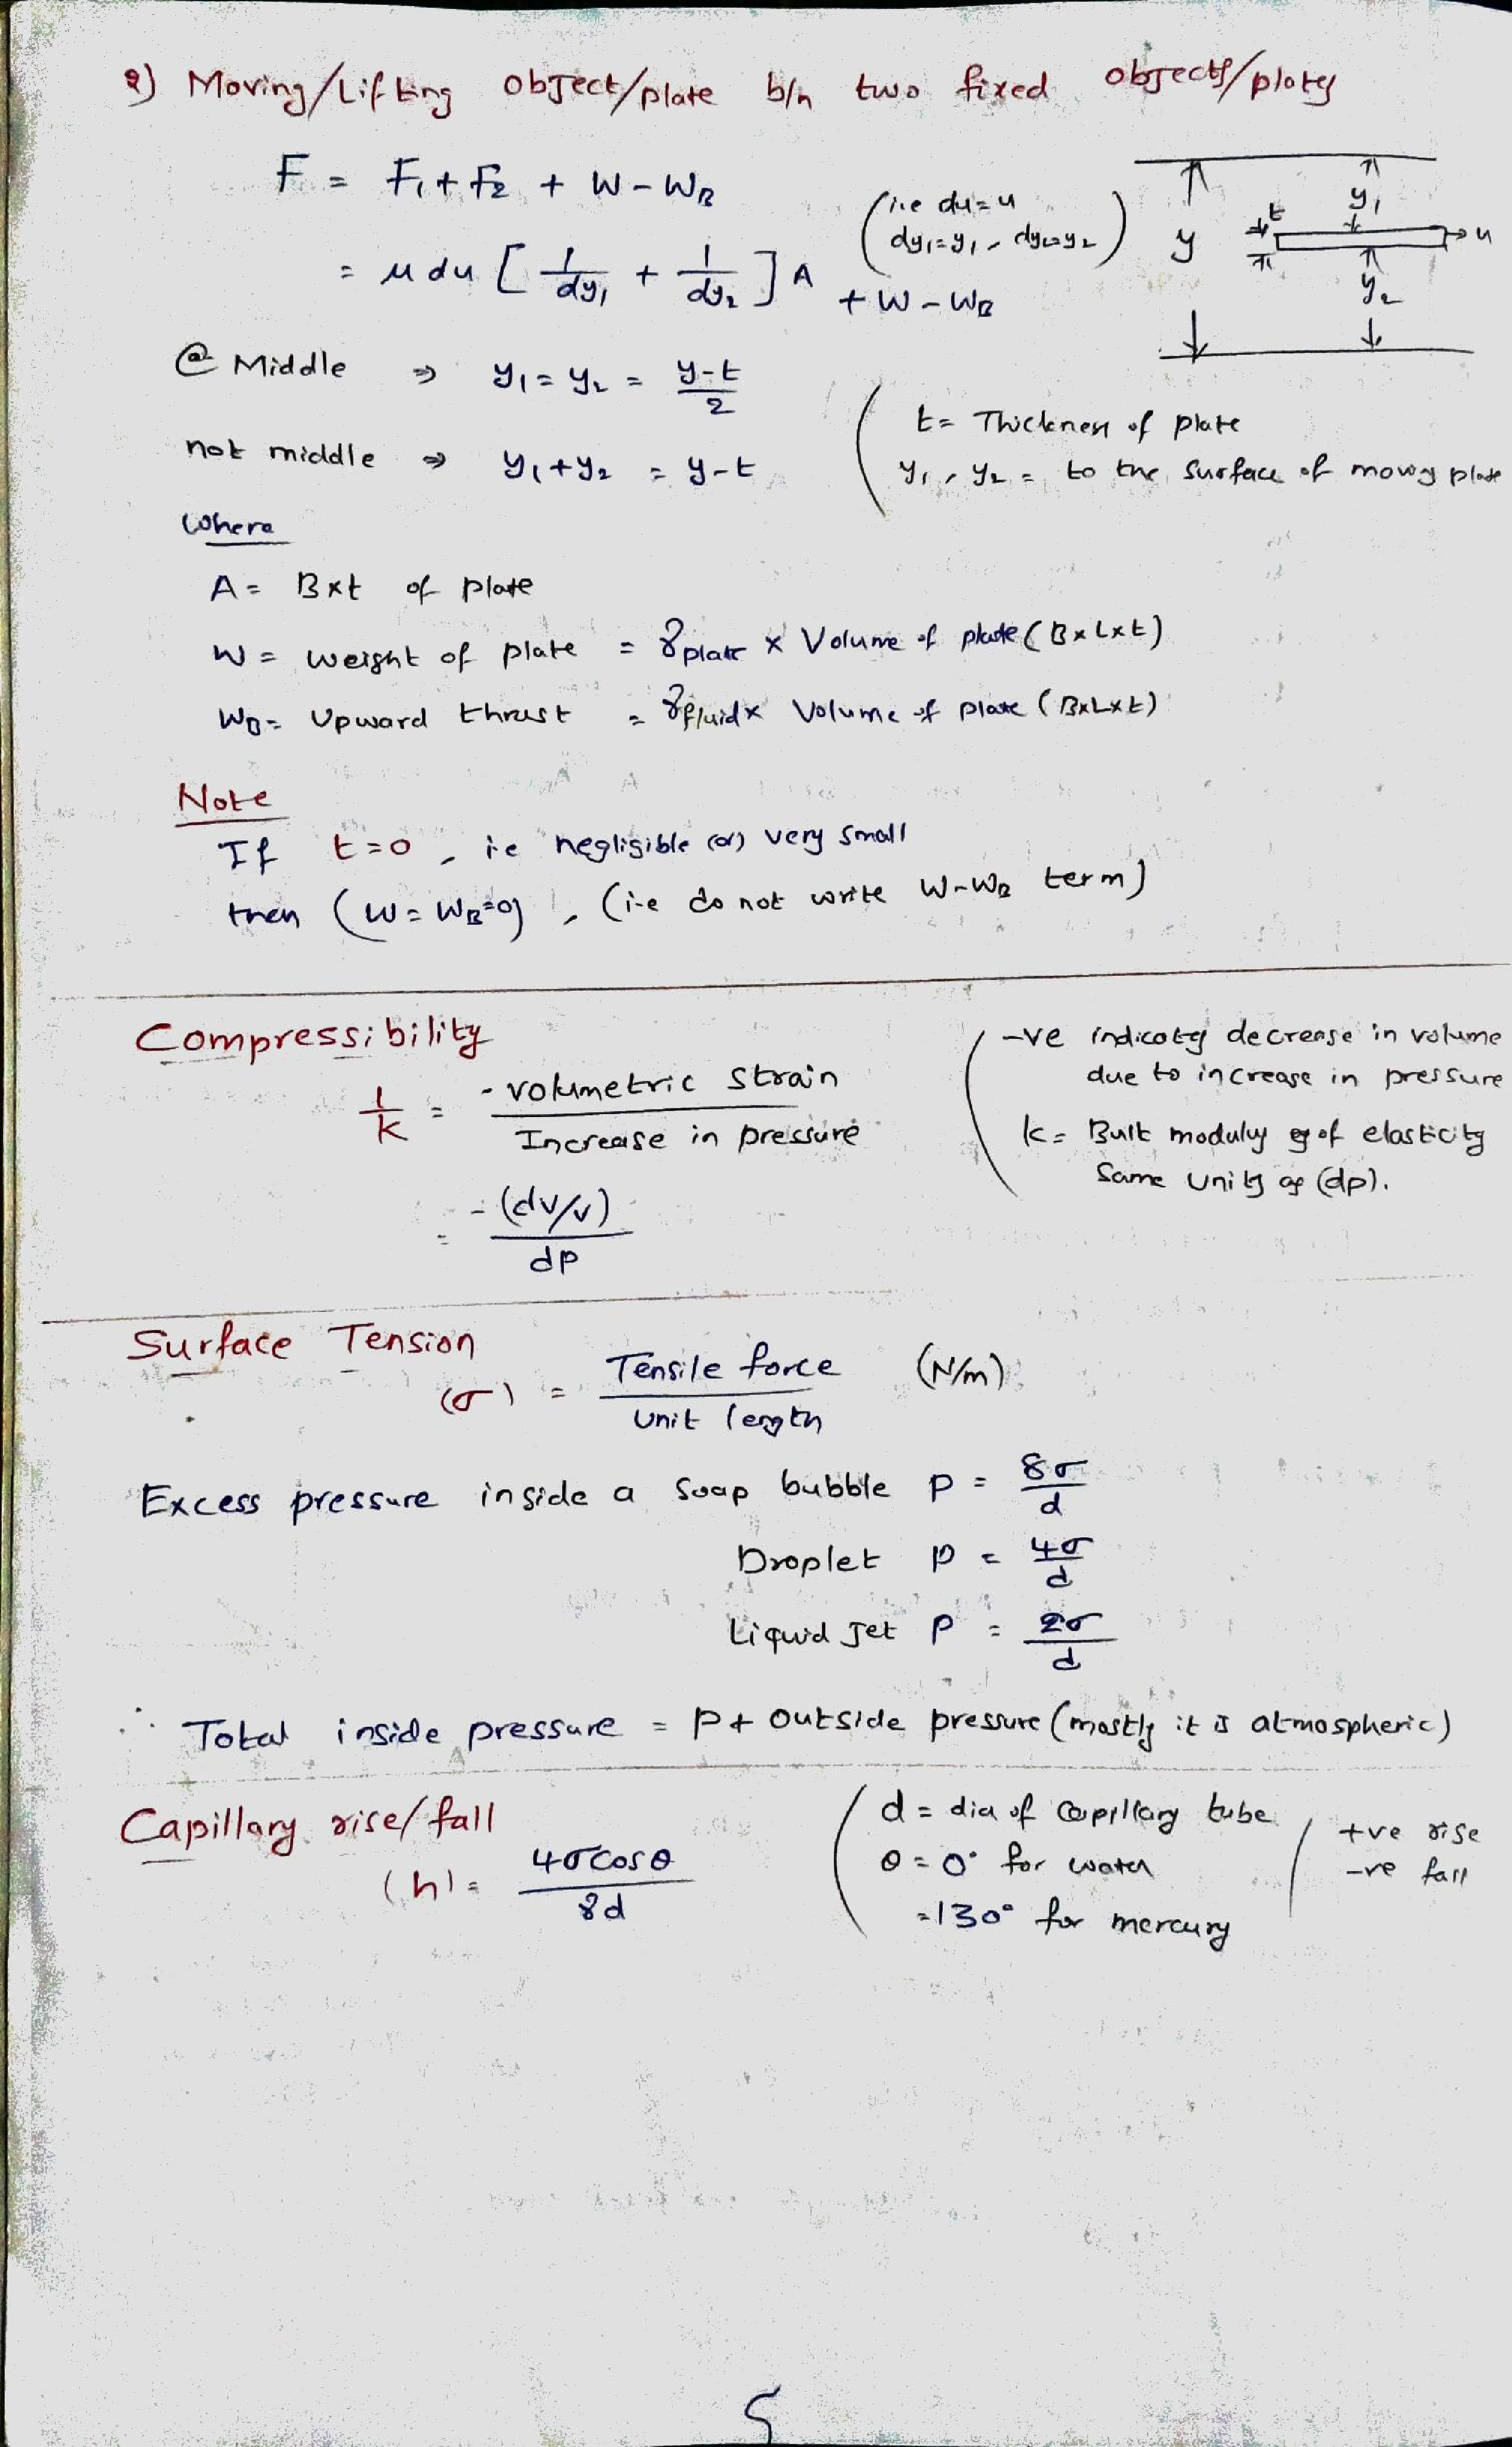 2) Moving/Lifting object/plate b/n two fixed objects/plates
F = F₁ + F₂ + W - W_B
= μ du [ 1/dy₁ + 1/dy₂ ] A + W - W_B
(i.e du = u
dy₁ = y₁, dy₂ = y₂)
y
t
y₁
u
y₂
@ Middle ⇒ y₁ = y₂ = (y-t)/2
not middle ⇒ y₁ + y₂ = y-t
t = Thickness of plate
y₁, y₂ = to the surface of moving plate
Where
A = B×t of plate
W = weight of plate = γplate × Volume of plate (B×L×t)
W_B = Upward thrust = γfluid × Volume of plate (B×L×t)
Note
If t=0, i.e negligible (or) very small
then (W = W_B = 0), (i.e do not write W-W_B term)
Compressibility
1/K = - volumetric strain / Increase in pressure
= -(dv/v) / dp
-ve indicates decrease in volume
due to increase in pressure
K = Bulk modulus of elasticity
Same units as (dp).
Surface Tension
(σ) = Tensile force / unit length (N/m)
Excess pressure inside a soap bubble P = 8σ/d
Droplet P = 4σ/d
Liquid Jet P = 2σ/d
∴ Total inside pressure = P + outside pressure (mostly it is atmospheric)
Capillary rise/fall
(h) = 4σcosθ / γd
d = dia of capillary tube
θ = 0° for water
= 130° for mercury
+ve rise
-ve fall
5